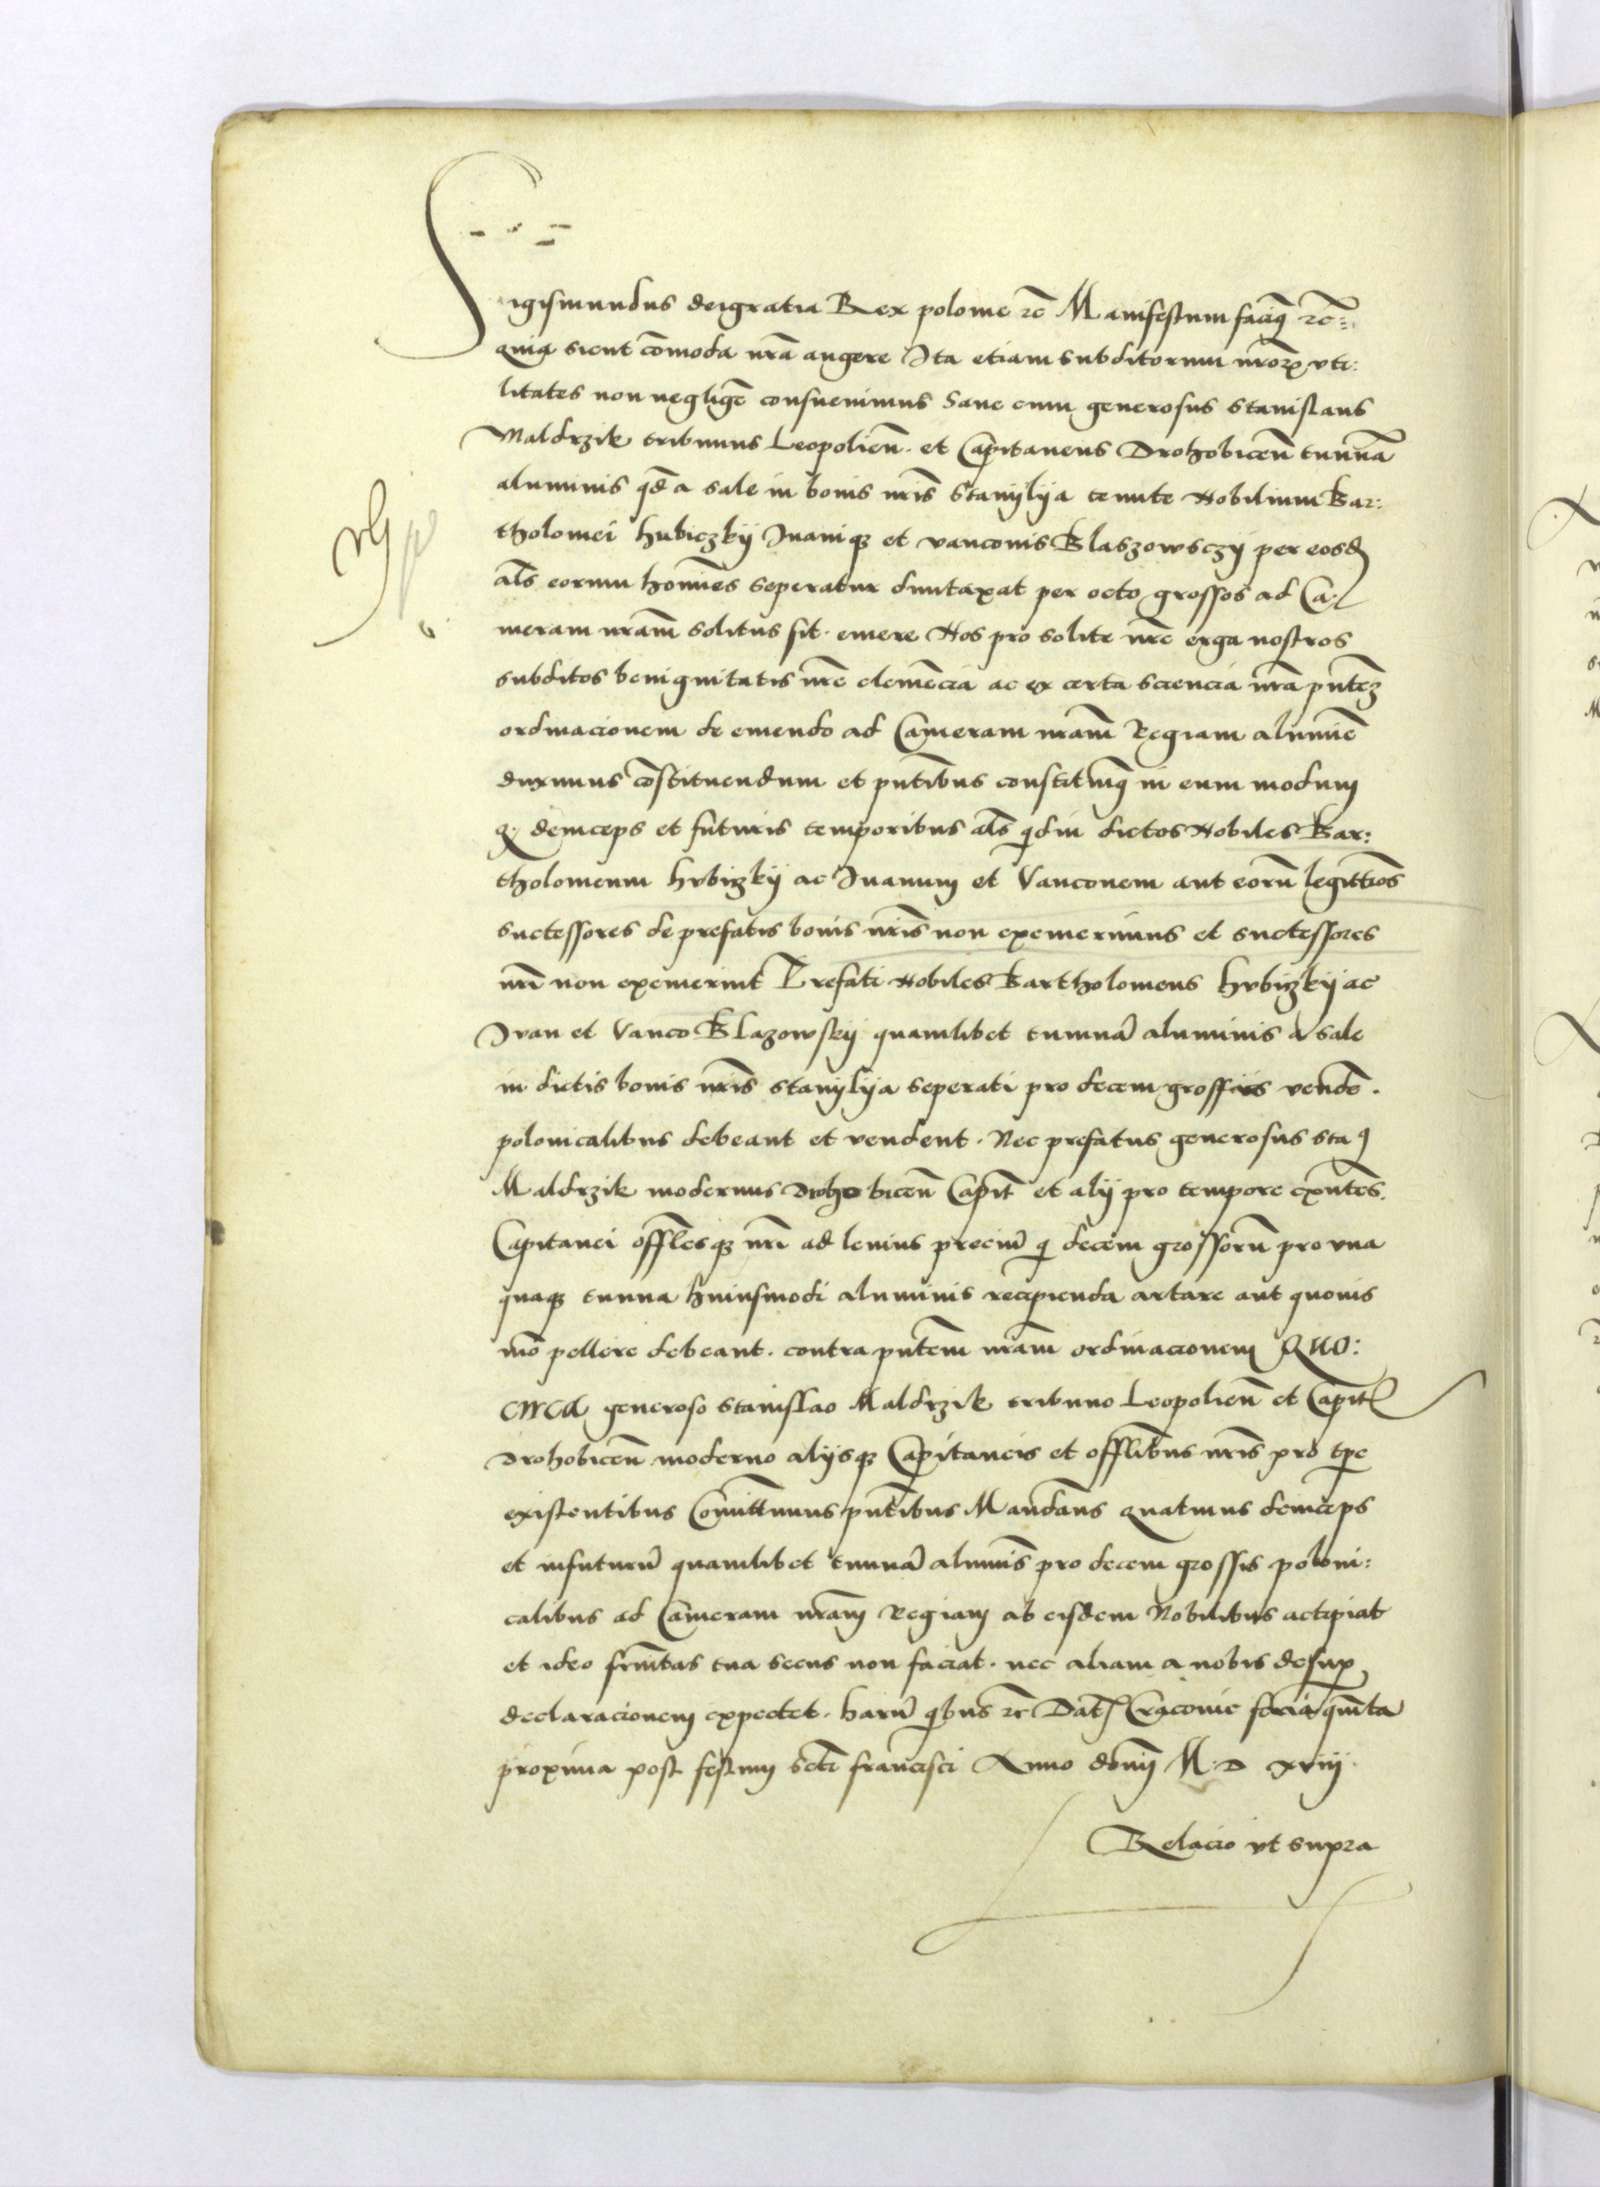 Sigismundus deigratia Rex polonie rc Manifestum facimq rc:
quia sicut comoda nra augere Ita etiam subditorum nrorz vti:
litates non neglige consuevimus Sane cum generosus Stanislaus
Maldrzik tribunus Leopolien. et Capitaneus Drohobicen tunna
aluminis qd a sale in bonis nris Stanylya tenute Nobilium Bar:
tholomei Hubiczkij Ivaniqz et vanconis Blaszowsczij per eosd
als eorum homines seperatur duntaxat per octo grossos ad Ca
meram nram solitus sit emere Nos pro solite nre erga nostros
subditos benignitatis nre clemecia ac ex certa sciencia nra pntez
ordinacionem de emendo ad Cameram nram Regiam alumie
duximus costituendum et pntibus constituimq in eum modum
q deinceps et futuris temporibus als qdiu dictos Nobiles Bar:
tholomeum hvbiczkij ac Ivanum et Vanconem aut eoru legittios
successores de prefatis bonis nris non exemerimus et successores
nri non exemerint Prefati Nobiles Bartholomeus hvbiczkij ac
Ivan et Vanco Blazowskij quamlibet tunna aluminis a sale
in dictis bonis nris stanylya seperati pro decem grossis vende.
polonicalibus debeant et vendent. Nec prefatus generosus sta
Maldrzik modernus Drohobicen Capit et alij pro tempore exntes.
Capitanei offlesqz nri ad levius preciu q decem grossoru pro vna
quaqz tunna huiusmodi aluminis recipienda artare aut quovis
mo pellere debeant. contra pntem nram ordinacionem QUO:
CIRCA generoso Stanislao Maldrzik tribuno Leopolien et Capit
Drohobicen moderno alijsqz Capitaneis et offlibus nris pro tpe
existentibus Comittimus pntibus Mandans quatinus deinceps
et infuturu quamlibet tunna aluminis pro decem grossis poloni:
calibus ad Cameram nram Regiam ab eisdem Nobilibus accipiat
et ideo srmtas tua secus non faciat. nec aliam a nobis desup
declaracionem expectet. haru qibus rc Dat Cracovie feria quinta
proxima post festum scti francisci Anno domi M. D xviij.
Relacio vt supra